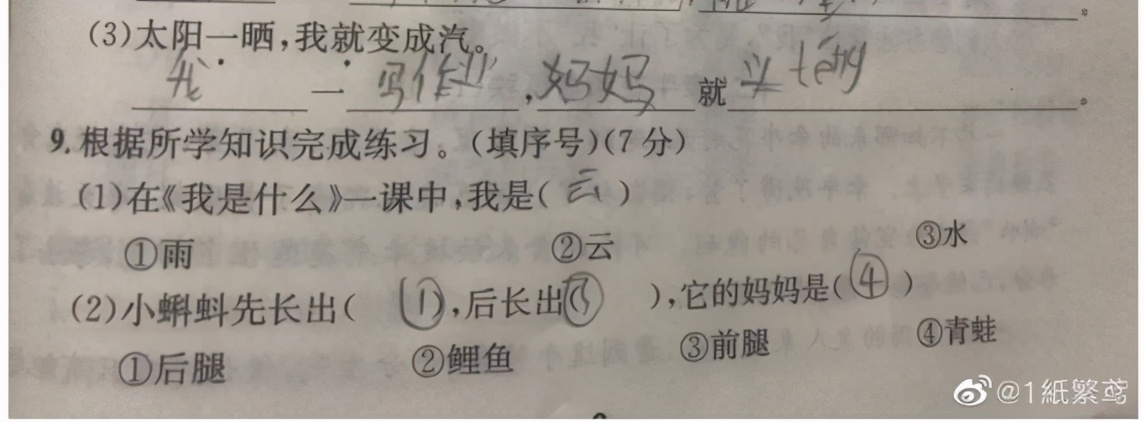 (3)太阳一晒,我就变成汽。
我一写作业,妈妈就头téng。
9.根据所学知识完成练习。(填序号)(7分)
(1)在《我是什么》一课中,我是(云)
①雨 ②云 ③水
(2)小蝌蚪先长出(①),后长出(③),它的妈妈是(④)
①后腿 ②鲤鱼 ③前腿 ④青蛙
@1紙繁鸢